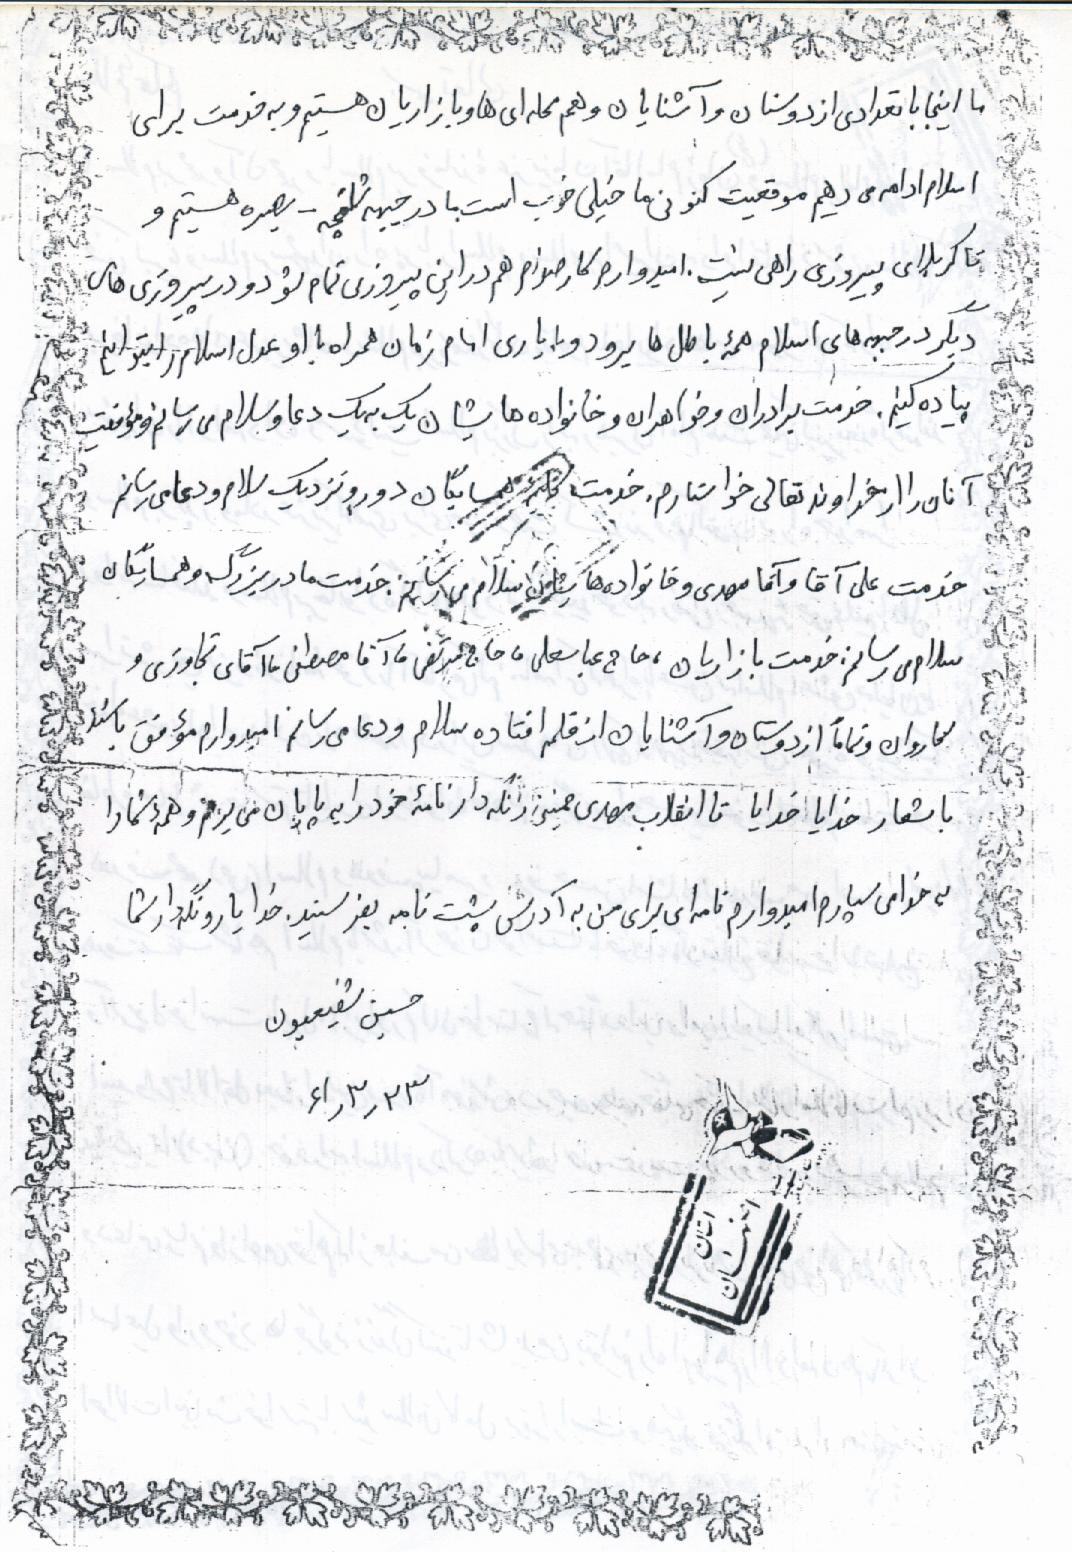 ما اینجا با تعدادی از دوستان و آشنایان و هم محله‌ای ها و بازاریان هستیم و به خدمت برای
اسلام ادامه می دهیم موقعیت کنونی ما خیلی خوب است ما در جبهه شلمچه - بصره هستیم و
تا کربلا راهی نیست. امیدوارم کار صدام هم در این پیروزی تمام شود و در پیروزی های
دیگر در جبهه های اسلام همهٔ باطل ها برود و با یاری امام زمان همراه با او عدل اسلام را بتوانیم
پیاده کنیم. خدمت برادران و خواهران و خانواده هایشان یک به یک دعا و سلام می رسانم و موفقیت
آنان را از خداوند تعالی خواستارم. خدمت همسایگان دور و نزدیک سلام و دعا می رسانم
خدمت علی آقا و آقا مهدی و خانواده ها سلام می رسانم. خدمت مادر بزرگ و همسایگان
سلام می رسانم. خدمت بازاریان، حاج عباسعلی، حاج آقا مصطفی، آقای و
و تماماً از دوستان و آشنایان از قلم افتاده سلام و دعا می رسانم امیدوارم موفق باشند
با شعار خدایا خدایا تا انقلاب مهدی خمینی را نگه دار نامهٔ خود را به پایان می برم و همهٔ شما را
به خدا می سپارم امیدوارم نامه ای برای من به آدرس پشت نامه بفرستید. خدا یار و نگهدار شما
حسین شفیعیون
۶۱ر۳ر۲۳
استان
اصفهان